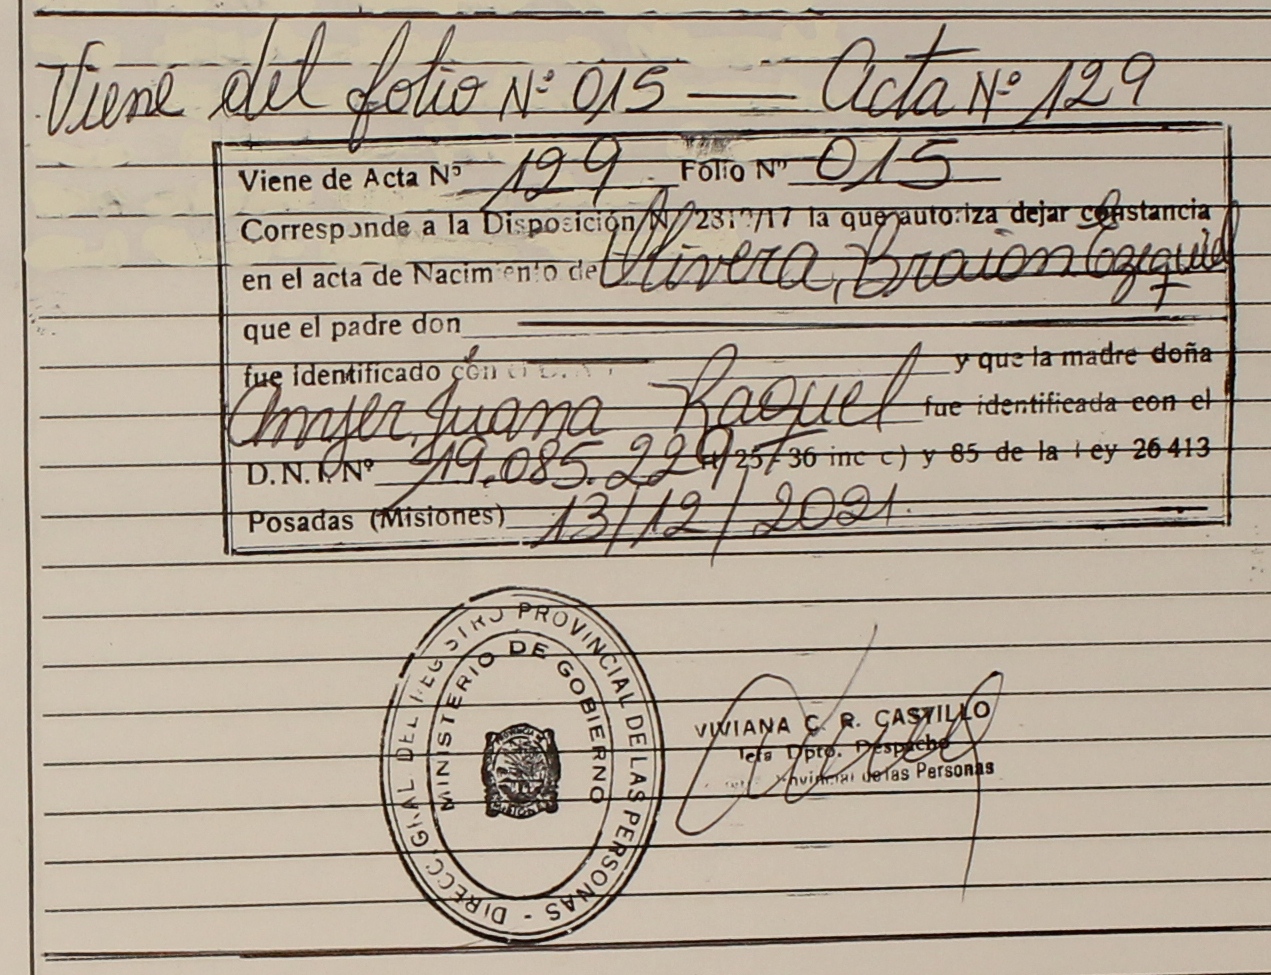 Viene del folio Nº 015 — Acta Nº 129
Viene de Acta Nº 129 Folio Nº 015
Corresponde a la Disposición Nº /17 la que autoriza dejar constancia
en el acta de Nacimiento de Olivera, Braian Ezequiel
que el padre don
fue identificado con y que la madre doña
Juana Raquel fue identificada con el
D.N.I. Nº 19.085.229 25 - 36 inc c) y 85 de la Ley 26413
Posadas (Misiones) 13/12/2021.
DIRECC. GRAL DEL REGISTRO PROVINCIAL DE LAS PERSONAS -
MINISTERIO DE GOBIERNO
VIVIANA C. R. CASTILLO
Jefa Dpto. Despacho
Provincial de las Personas